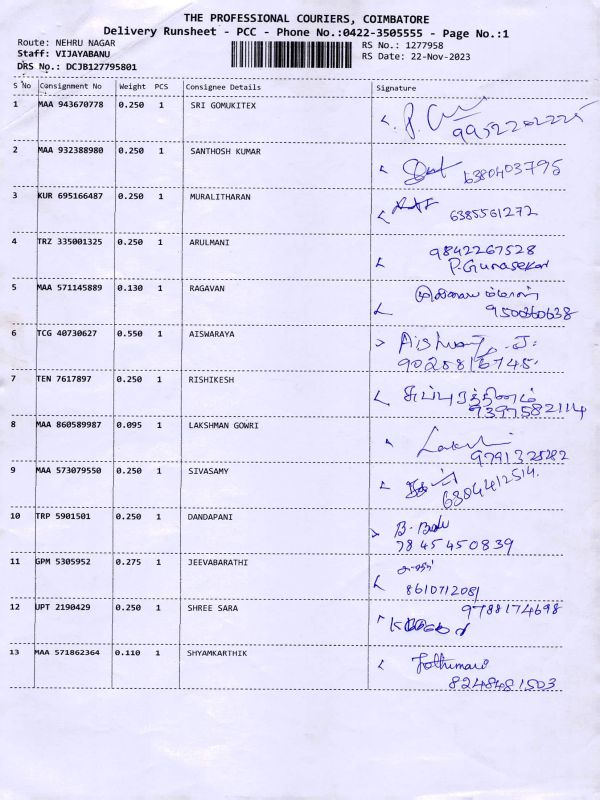 THE PROFESSIONAL COURIERS, COIMBATORE
Delivery Runsheet - PCC - Phone No.:0422-3505555 - Page No.:1
Route: NEHRU NAGAR
Staff: VIJAYABANU
DRS No.: DCJB127795801
RS No.: 1277958
RS Date: 22-Nov-2023
S No Consignment No Weight PCS Consignee Details Signature
1 MAA 943670778 0.250 1 SRI GOMUKITEX
2 MAA 932388980 0.250 1 SANTHOSH KUMAR
6380403795
3 KUR 695166487 0.250 1 MURALITHARAN
6385561272
4 TRZ 335001325 0.250 1 ARULMANI
9842267528
P.Gunasekar
5 MAA 571145889 0.130 1 RAGAVAN
6 TCG 40730627 0.550 1 AISWARAYA
9025816745
7 TEN 7617897 0.250 1 RISHIKESH
சுப்புரத்தினம்
9397582114
8 MAA 860589987 0.095 1 LAKSHMAN GOWRI
9 MAA 573079550 0.250 1 SIVASAMY
6384412514
10 TRP 5901501 0.250 1 DANDAPANI
7845450839
11 GPM 5305952 0.275 1 JEEVABARATHI
8610712081
12 UPT 2190429 0.250 1 SHREE SARA
9788174698
13 MAA 571862364 0.110 1 SHYAMKARTHIK
Jothimani
8248481503